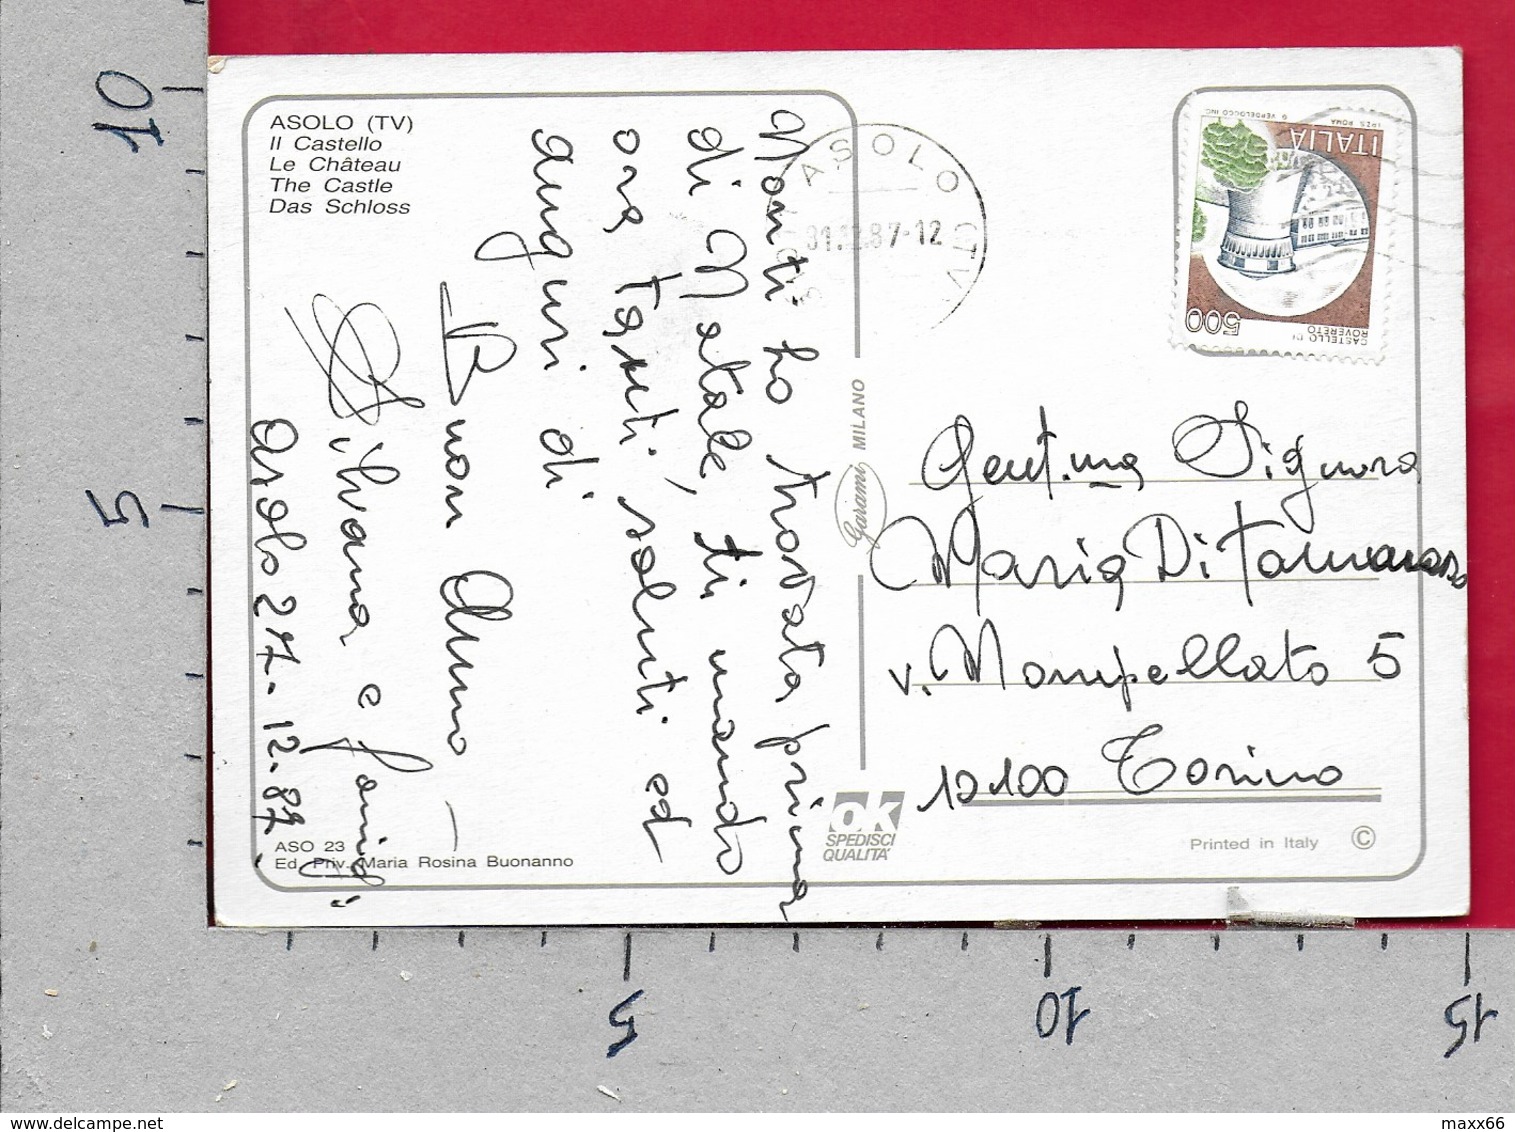 ASOLO (TV)
Il Castello
Le Château
The Castle
Das Schloss
Non ti ho trovata prima
di Natale, ti mando
ora tanti saluti ed
auguri di
Buon Anno
Silvana e
Asolo 27.12.87.
ASO 23
Ed. Priv. Maria Rosina Buonanno
ASOLO (TV)
31.12.87-12
Garami MILANO
OK
SPEDISCI
QUALITA'
ITALIA
500
CASTELLO DI
ROVERETO
I.P.Z.S. ROMA
Gent.ma Signora
Maria Di Tommaso
v. Mompellato 5
10100 Torino
Printed in Italy ©
10
5
5
10
15
www.delcampe.net
maxx66